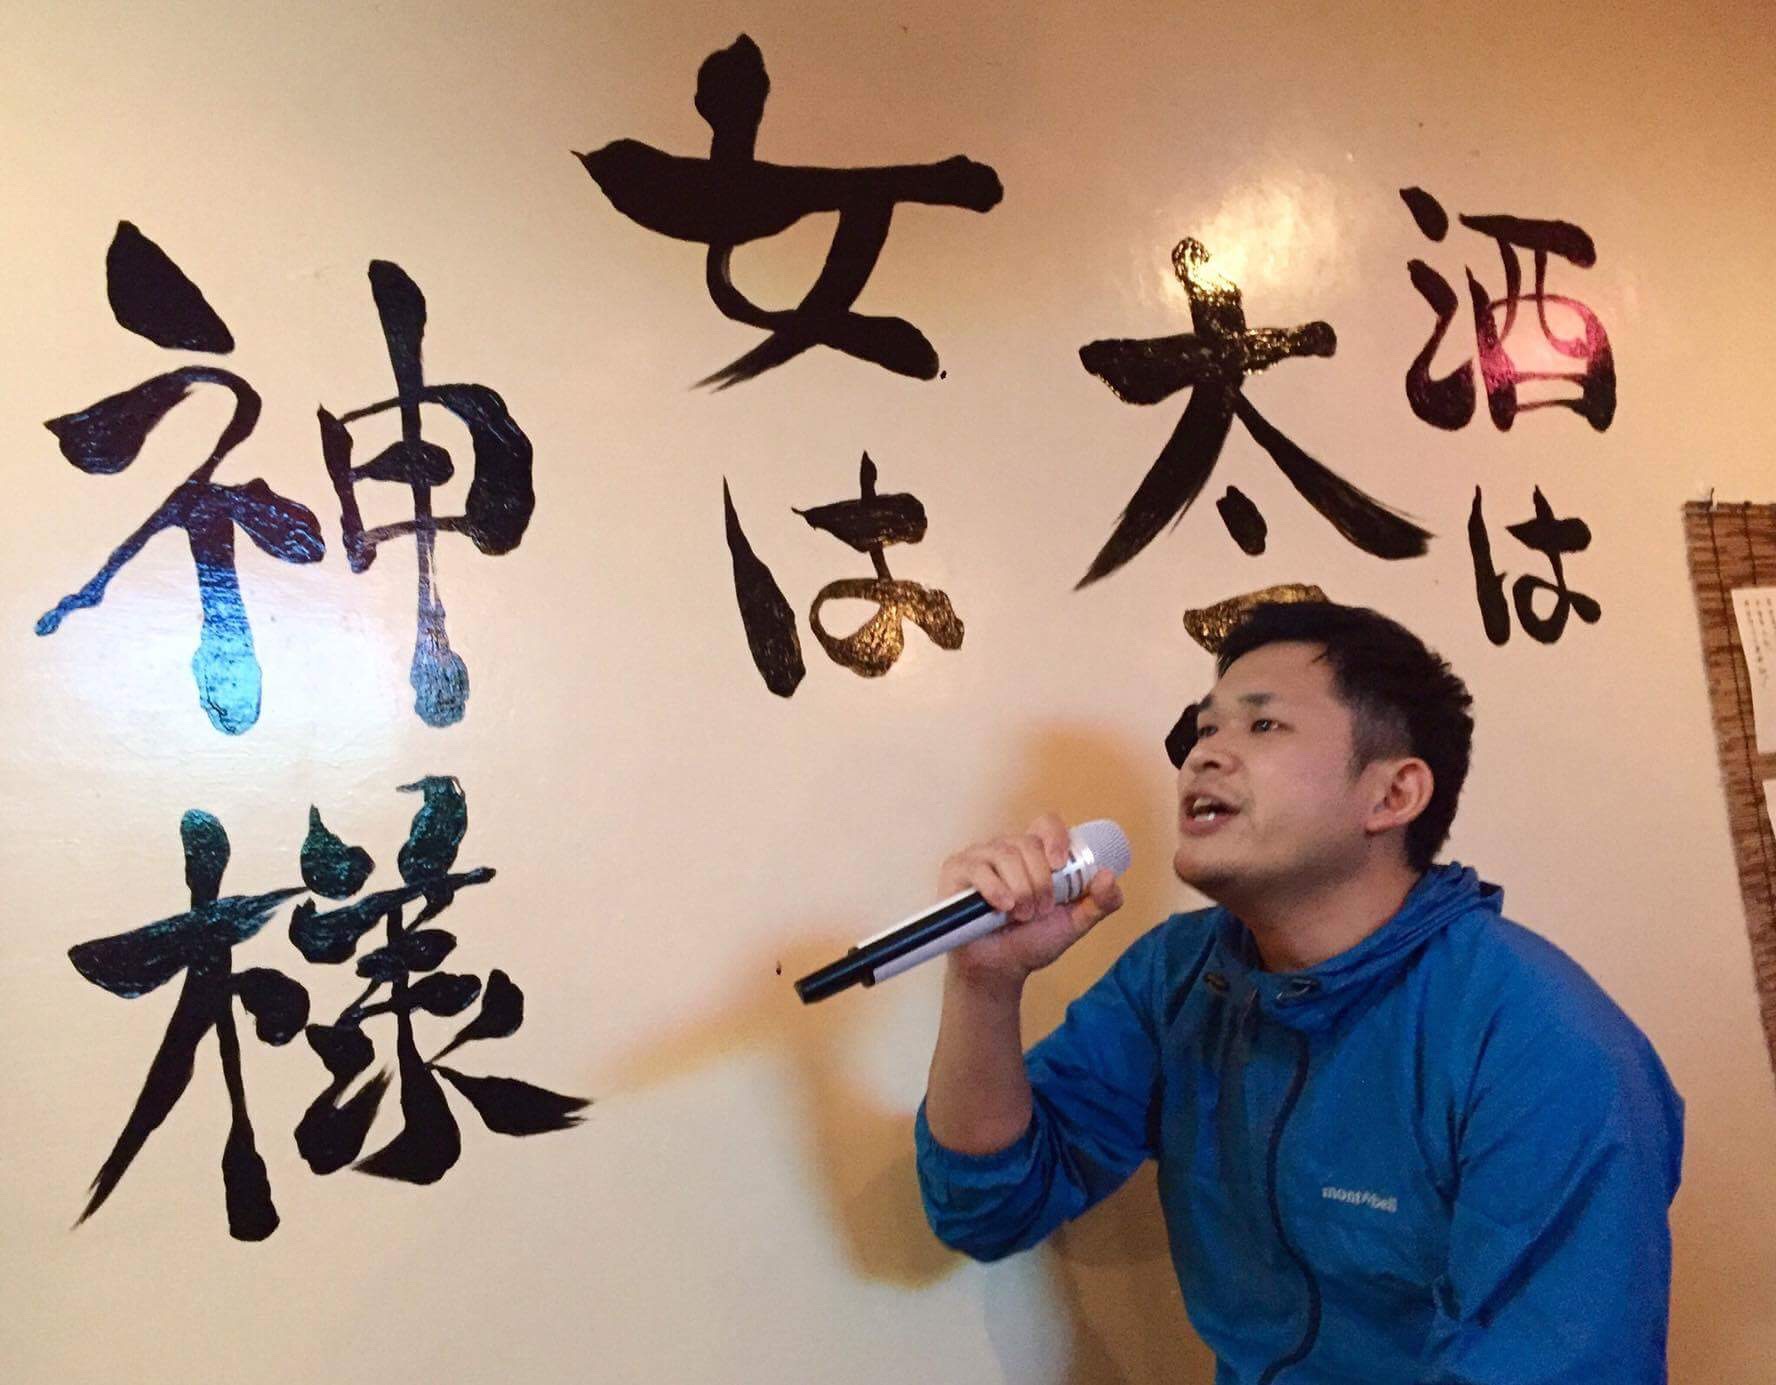 酒は
太
女は
神様
mont-bell